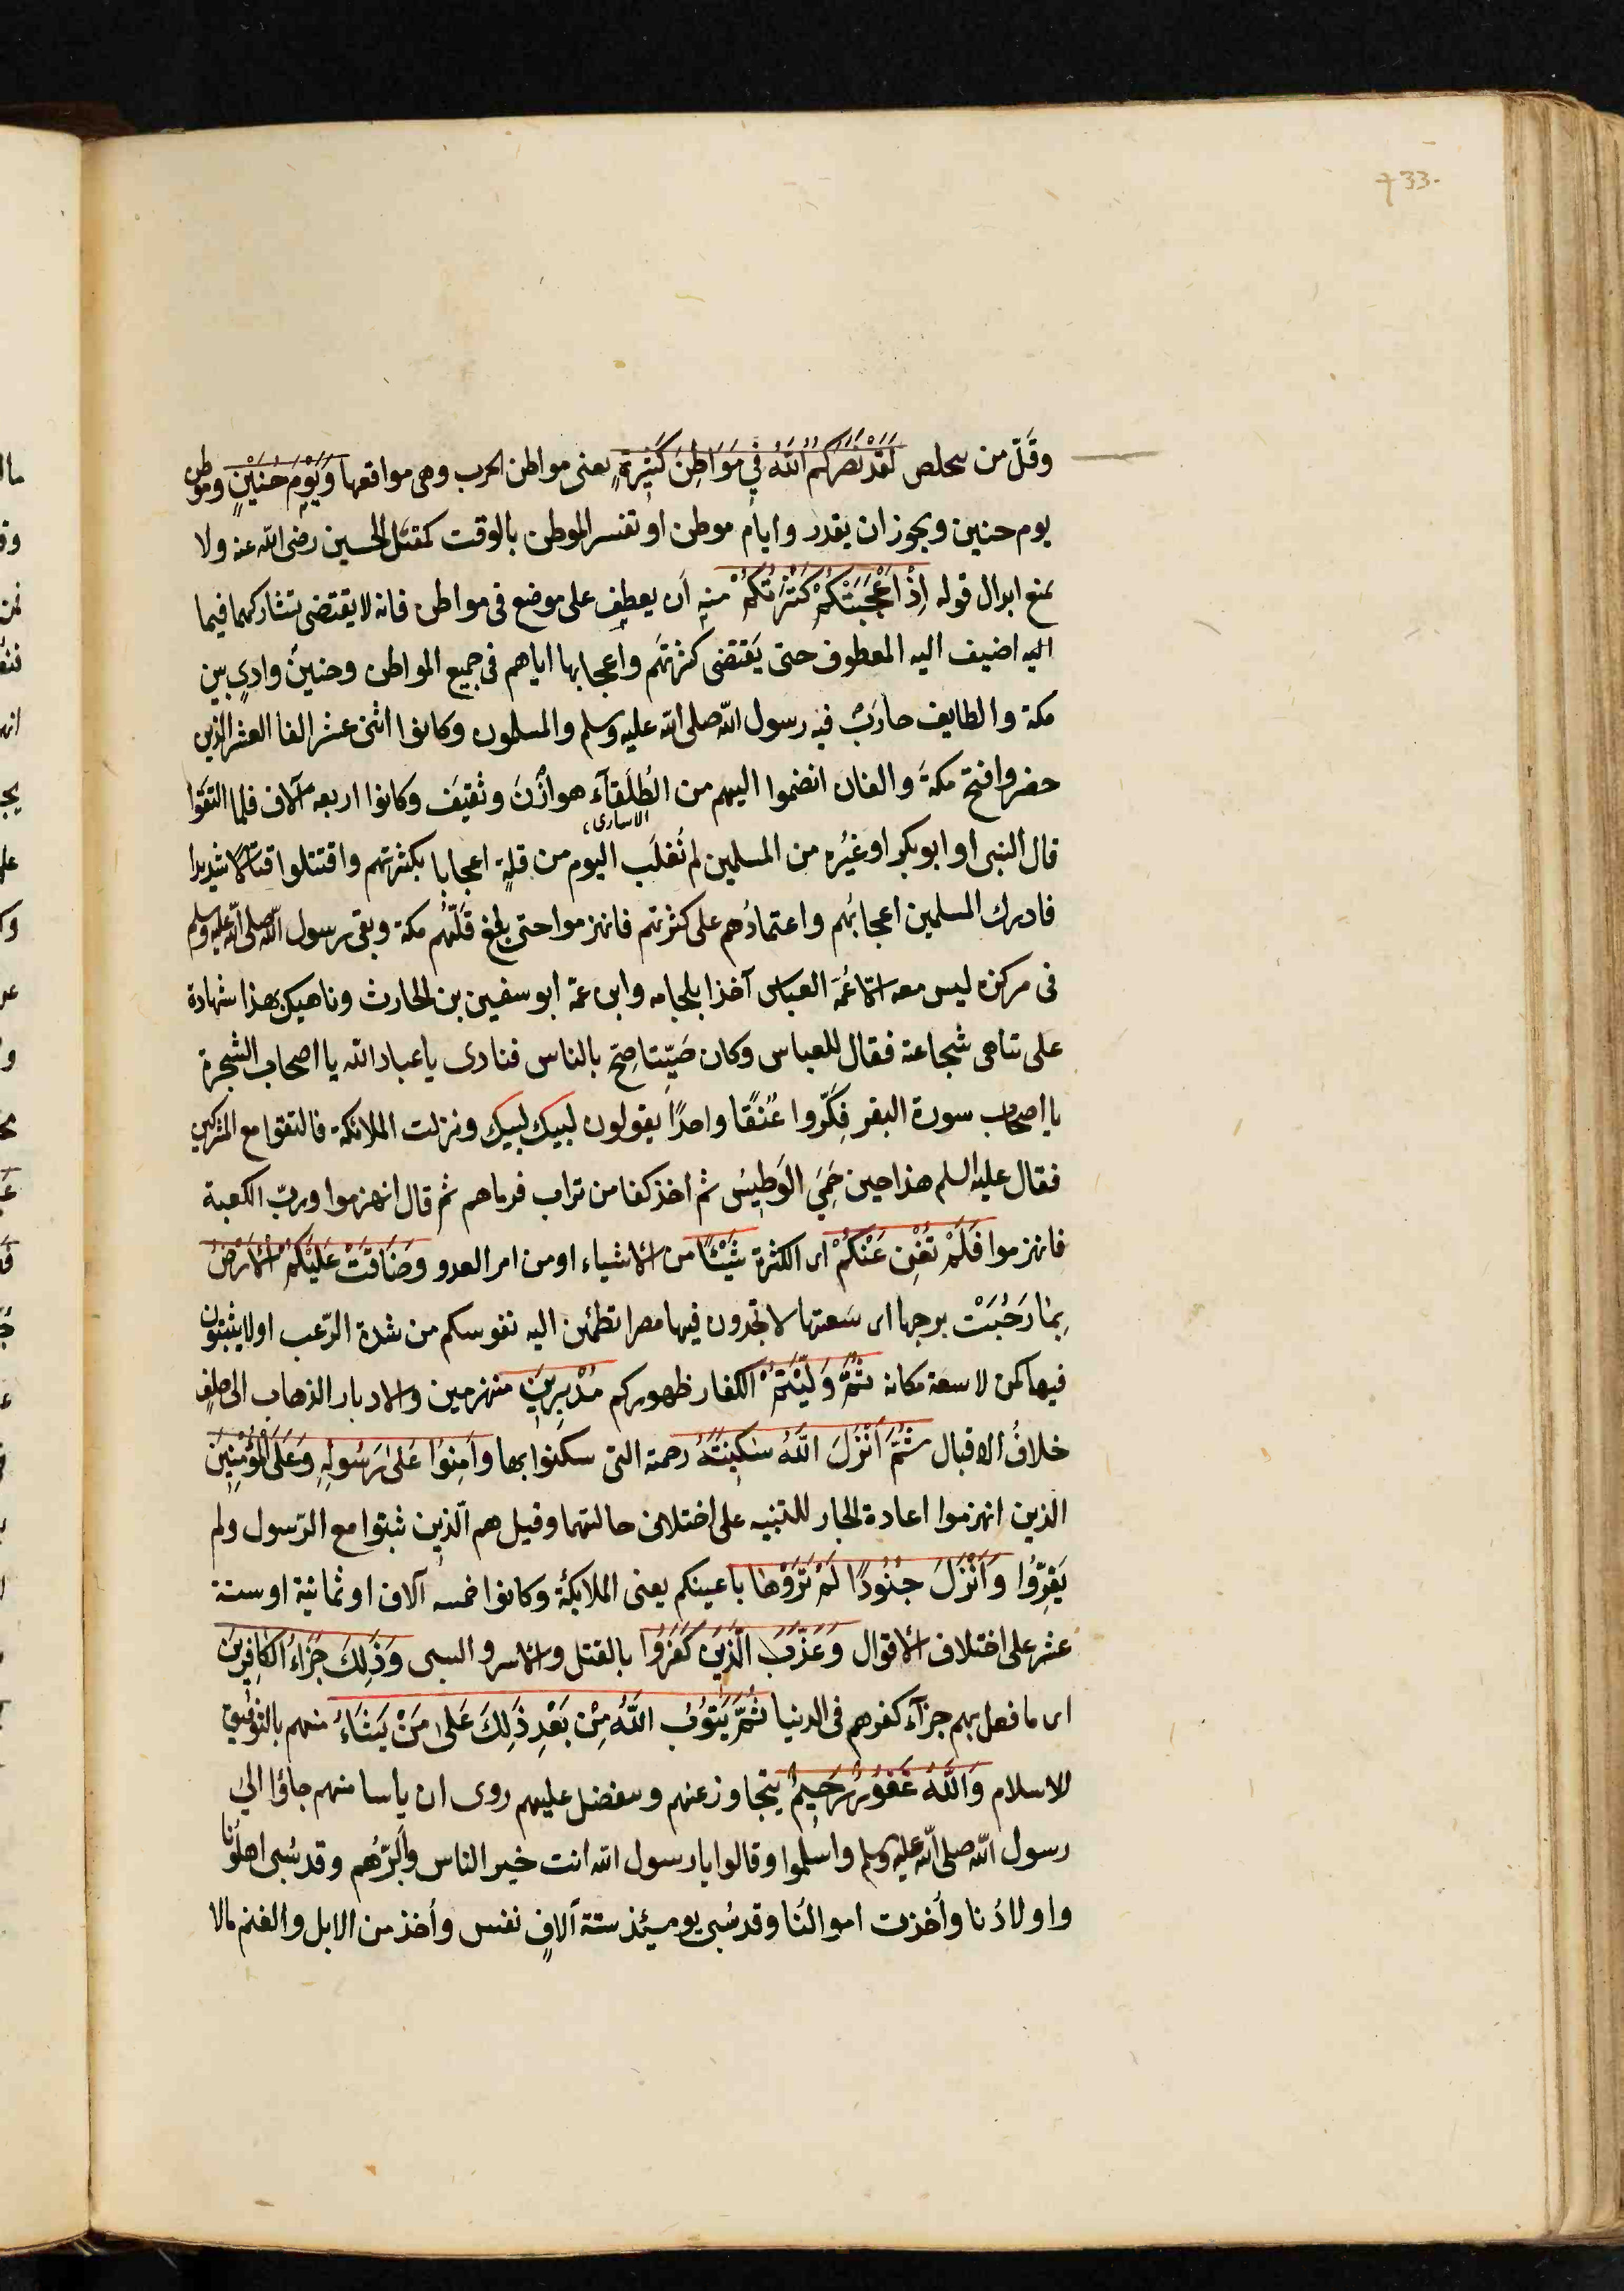 +33.
وقَلّ من يتخلص لَقَدْ نَصَرَكُمُ اللَّهُ فِي مَوَاطِنَ كَثِيرَةٍ يعنى مواطن الحرب وهى مواقعها وَيَوْمَ حُنَيْنٍ وموطن
يوم حنين ويجوز ان يقدر وايام موطن او تفسر الموطن بالوقت كمقتل الحسين رضى الله عنه ولا
يمنع ابدال قوله اِذْ اَعْجَبَتْكُمْ كَثْرَتُكُمْ منه اَن يعطف على موضع فى مواطن فانه لا يقتضى تشاركهما فيما
اليه اضيف اليه المعطوف حتى يَقتضى كثرتَهم واِعجابها اياهم فى جميع المواطن وحنينٌ وادٍ بين
مكة والطايف حارَبَ فيه رسول الله صلى الله عليه وسلم والمسلمون وكانوا اثنى عشر الفا العشر الذين
حضروا فتح مكةَ والفان انضموا اليهم من الطُلَقآء هوازنَ وثقيفَ وكانوا اربعه آلاف فلما التقَوا
الاسارى
قال النبى او ابو بكر او غيرُه من المسلمين لم نُغلَب اليوم من قلةٍ اعجابا بكثرتهم واقتتلوا قتالا شديدا
فادرك المسلمين اعجابُهم واعتمادُهم على كثرتهم فانهزموا حتى بلغ فَلّهُم مكة وبقى رسول الله صلى الله عليه وسلم
فى مركزه ليس معه الا عمّه العباس آخذا بلجامه وابن عمّه ابو سفين بن الحارث وناهيك بهذا شهادة
على تناهى شجاعته فقال للعباس وكان صَيّتا صِحْ بالناس فنادى يا عباد الله يا اصحاب الشجرة
يا اصحاب سورة البقر فكَرّوا عُنُقًا واحدًا يقولون لبيك لبيك ونزلت الملائكة فالتقوا مع المشركين
فقال عليه السلم هذا حين حَمِيَ الوَطِيسُ ثم اخذ كفا من تراب فرماهم ثم قال انهزموا وربّ الكعبة
فانهزموا فَلَمْ تُغْنِ عَنْكُمْ اى الكثرة شَيْئًا من الاشياء او من امر العدو وَضَاقَتْ عَلَيْكُمُ الْاَرْضُ
بِمَا رَحُبَتْ برحبها اى سَعتها لا تجدون فيها مفرا تطمئن اليه نفوسكم من شدة الرّعب اولا يثبتون
فيها كمن لا سعة مكانه ثُمَّ وَلَّيْتُمْ الكفار ظهوركم مُدْبِرِينَ منهزمين والادبار الذهاب الى خلفٍ
خلافُ الاقبال ثُمَّ اَنْزَلَ اللَّهُ سَكِينَتَهُ رحمته التى سكنوا بها وآمِنوا عَلَى رَسُولِهِ وَعَلَى الْمُؤْمِنِينَ
الذين انهزموا اعادة الجار للتنبيه على اختلاف حالتهما وقيل هم الّذِين ثبتوا مع الرّسول ولم
يَفِرُّوا وَاَنْزَلَ جُنُودًا لَمْ تَرَوْهَا باعينكم يعنى الملايكة وكانوا خمسه آلاف او ثمانية او ستة
عشر على اختلاف الاقوال وَعَذَّبَ الَّذِينَ كَفَرُوا بالقتل والاسر والسبى وَذَلِكَ جَزَاءُ الْكَافِرِينَ
اى ما فعل بهم جزآء كفرهم فى الدنيا ثُمَّ يَتُوبُ اللَّهُ مِنْ بَعْدِ ذَلِكَ عَلَى مَنْ يَشَاءُ منهم بالتوفيق
للاسلام وَاللَّهُ غَفُورٌ رَحِيمٌ يتجاوز عنهم ويتفضل عليهم روى ان ناسا منهم جاؤا الى
رسول الله صلى الله عليه وسلم واسلموا وقالوا يا رسول الله انت خير الناس وأبرّهم وقد سُبى اهلُونا
واولادُنا وأخذت اموالُنا وقد سُبى يوميئذ ستة آلافِ نفس وأُخذ من الابل والغنم مالا